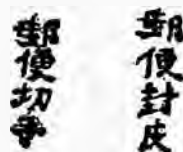 郵便封皮
郵便切手